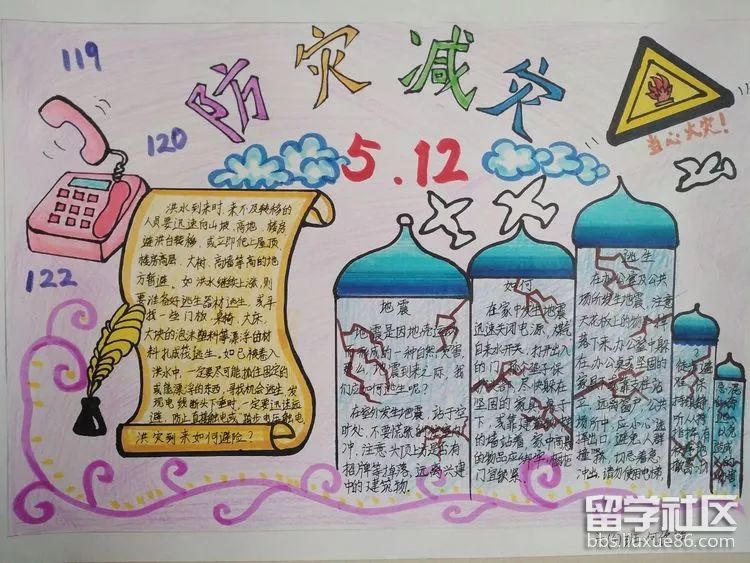 119
防灾减灾
120
5.12
当心火灾!
122
洪水到来时,来不及转移的
人员要迅速向山坡、高地、楼房
避洪台转移,或立即爬上屋顶、
楼房高层、大树、高墙等高的地
方暂避。如洪水继续上涨,则
要准备好逃生器材逃生,或寻
找一些门板、桌椅、大床、
大块的泡沫塑料等漂浮的材
料扎成筏逃生。如已被卷入
洪水中,一定要尽可能抓住固定的
或能漂浮的东西,寻找机会逃生发
现电线断头下垂时,一定要迅速远
避,防止直接触电或"跨步电压"触电
洪灾到来如何避险?
地震
地震是因地壳运动
形成的一种自然灾害,
么,地震到来之际,我
们应如何逃生呢?
在室外发生地震,站于空
时处,不要慌张
冲,注意大顶上方是否有
招牌等掉落,远离兴建
中的建筑物。
如何
在家中发生地震
迅速关闭电源、煤气
自来水开关,打开出入
的门
尽快躲在
坚固的家具
下,或靠建
的墙站着
的物品应
门宜锁紧。
逃生
在办公室及公共
场所发生地震,注意
天花板上的物
落下来,办公室中躲
在办公桌或坚固的
家具
立,远离窗户,公共
场所中,应小心选
择出口,避免人群
撞落,切忌急忙
冲出,请勿使用电梯。
留学社区
bbs.liuxue86.com